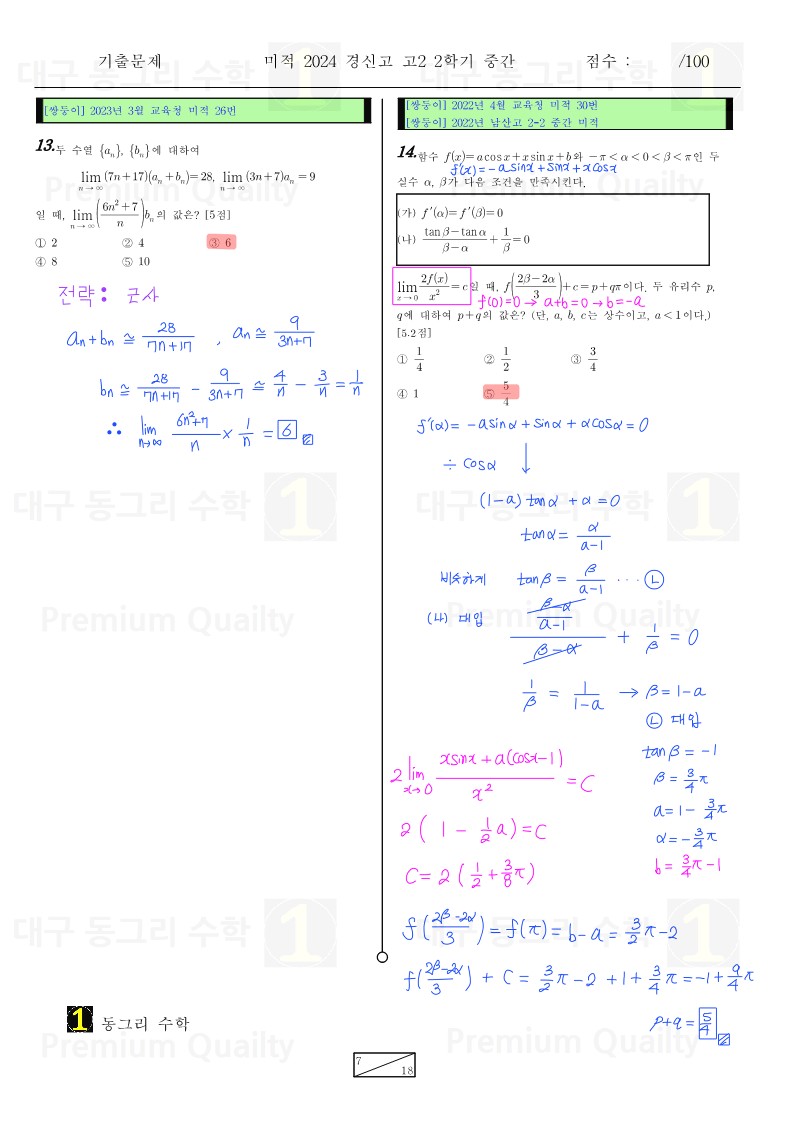 기출문제 미적 2024 경신고 고2 2학기 중간 점수 : /100
[쌍둥이] 2023년 3월 교육청 미적 26번
13. 두 수열 {a_n}, {b_n}에 대하여
lim_{n→∞} (7n+17)(a_n+b_n)=28, lim_{n→∞} (3n+7)a_n=9
일 때, lim_{n→∞} ((6n²+7)/n) b_n의 값은? [5점]
① 2 ② 4 ③ 6
④ 8 ⑤ 10
전략: 근사
a_n+b_n ≅ 28/(7n+17) , a_n ≅ 9/(3n+7)
b_n ≅ 28/(7n+17) - 9/(3n+7) ≅ 4/n - 3/n = 1/n
∴ lim_{n→∞} (6n²+7)/n × 1/n = 6
[쌍둥이] 2022년 4월 교육청 미적 30번
[쌍둥이] 2022년 남산고 2-2 중간 미적
14. 함수 f(x)=a cos x+x sin x+b와 -π<α<0<β<π인 두
f'(x)=-a sinx+sinx+x cosx
실수 α, β가 다음 조건을 만족시킨다.
(가) f'(α)=f'(β)=0
(나) (tan β-tan α)/(β-α) + 1/β = 0
lim_{x→0} 2f(x)/x² = c일 때, f((2β-2α)/3)+c=p+qπ이다. 두 유리수 p,
f(0)=0 → a+b=0 → b=-a
q에 대하여 p+q의 값은? (단, a, b, c는 상수이고, a<1이다.)
[5.2점]
① 1/4 ② 1/2 ③ 3/4
④ 1 ⑤ 5/4
f'(α)= -a sinα + sinα + α cosα = 0
÷ cosα ↓
(1-a) tanα + α = 0
tanα = α/(a-1)
비슷하게 tanβ = β/(a-1) ··· ㉡
(나) 대입 ((β-α)/(a-1))/(β-α) + 1/β = 0
1/β = 1/(1-a) → β=1-a
㉡ 대입
tanβ = -1
β = 3/4 π
a = 1- 3/4 π
α = -3/4 π
b = 3/4 π -1
2 lim_{x→0} (x sinx + a(cosx-1))/x² = C
2(1 - 1/2 a) = C
C = 2(1/2 + 3/8 π)
f((2β-2α)/3) = f(π) = b-a = 3/2 π - 2
f((2β-2α)/3) + C = 3/2 π - 2 + 1 + 3/4 π = -1 + 9/4 π
p+q = 5/4
1 동그리 수학
7 18
대구 동그리 수학 1
Premium Quailty